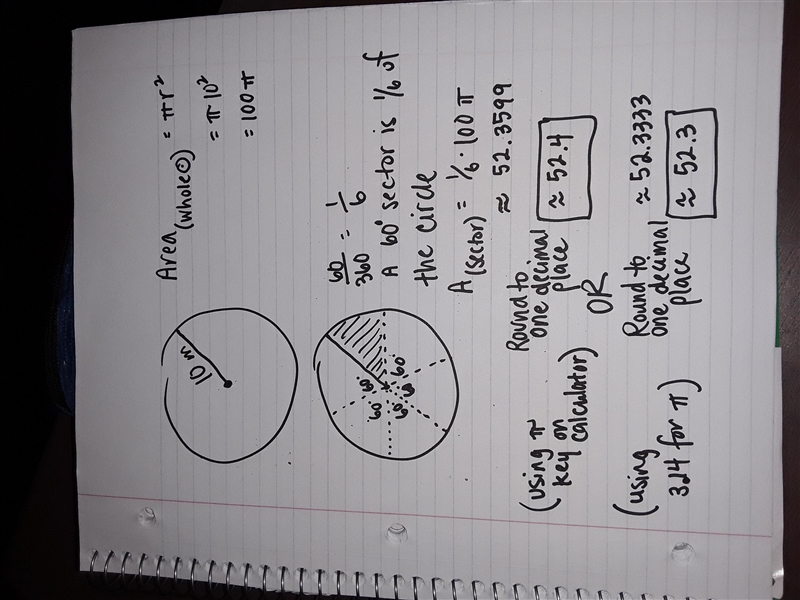 10 m
Area (whole ⊙) = πr²
= π 10²
= 100 π
60 60 60 60 60
60/360 = 1/6
A 60° sector is 1/6 of
the circle
A (sector) = 1/6 · 100 π
≈ 52.3599
(using π
key on
calculator)
Round to
one decimal
place
≈ 52.4
OR
(using
3.14 for π)
≈ 52.3333
Round to
one decimal
place
≈ 52.3